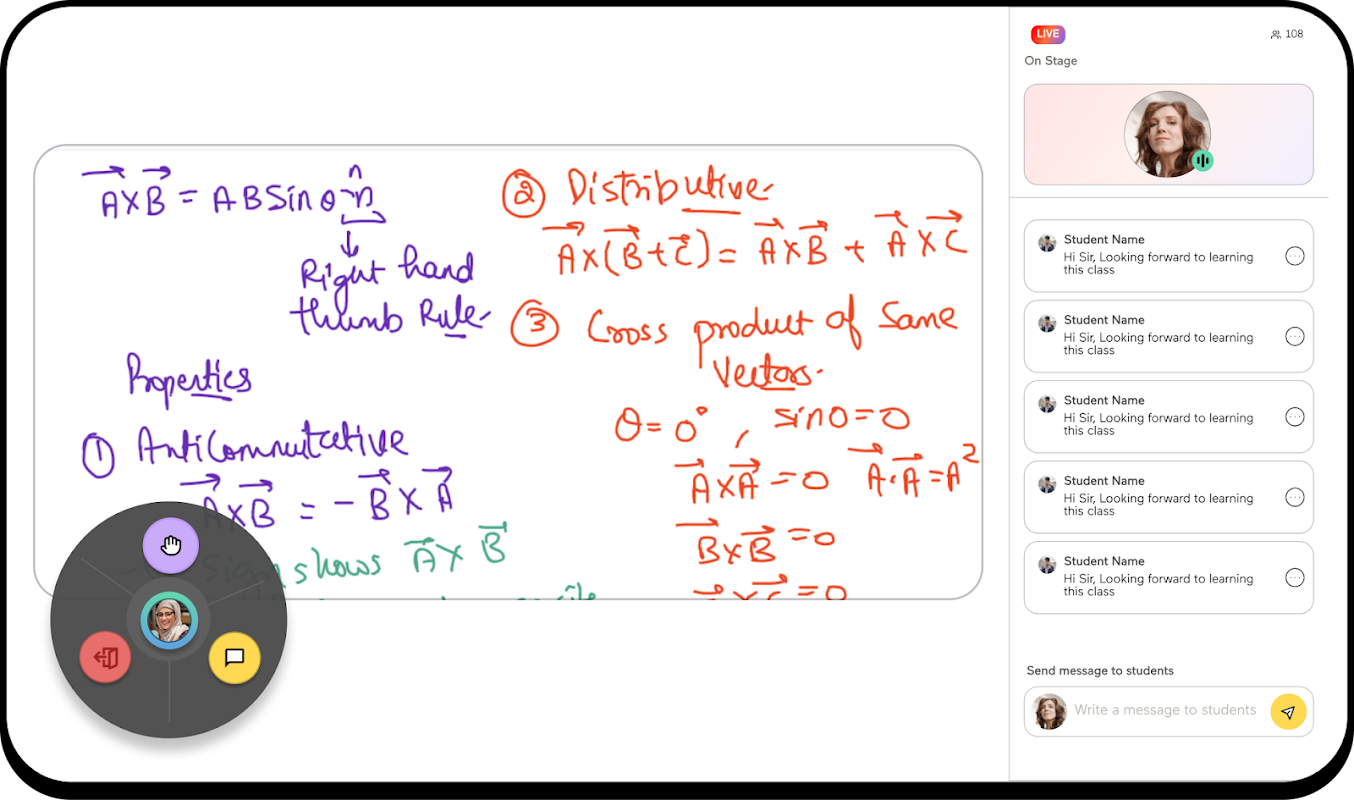 A×B = AB Sin θ n̂
Right hand
thumb Rule
Properties
① Anticommutative
A×B = -B×A
Sign shows A× B
② Distributive
A×(B+C) = A×B + A×C
③ Cross product of Same
Vectors.
θ = 0°, sin0=0
A×A = 0 A·A = A²
B×B = 0
×C = 0
LIVE
108
On Stage
Student Name
Hi Sir, Looking forward to learning
this class
Student Name
Hi Sir, Looking forward to learning
this class
Student Name
Hi Sir, Looking forward to learning
this class
Student Name
Hi Sir, Looking forward to learning
this class
Student Name
Hi Sir, Looking forward to learning
this class
Send message to students
Write a message to students